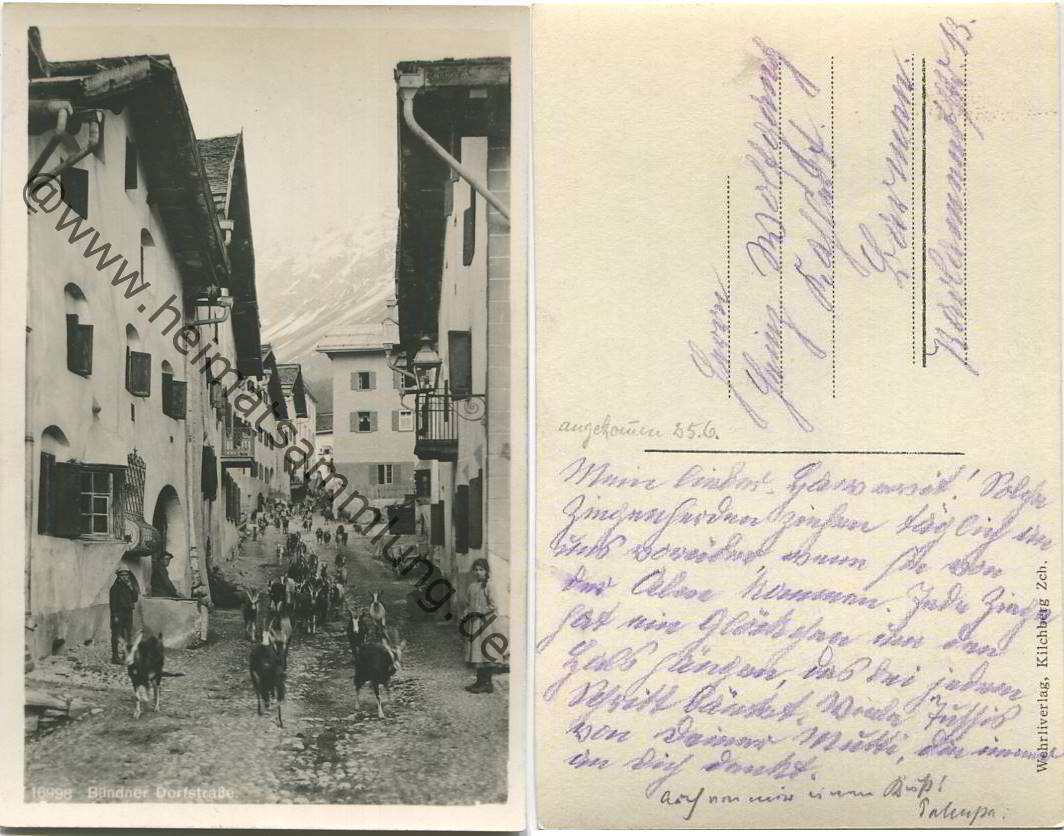 16998 Bündner Dorfstraße
@www.heimatsammlung.de
Herrn
Heinz Wolfgang
Barmen.
13.
angekommen 25.6.
Mein lieber, Solche
Ziegenherden ziehen täglich an
uns vorüber, wenn sie von
der Alm kommen. Jede Ziege
hat ein Glöckchen um den
Hals hängen, das bei jedem
Schritt läutet. Viele
von Deiner Mutti, die immer
an Dich denkt.
auch von mir einen Kuß!
Wehrliverlag, Kilchberg Zch.